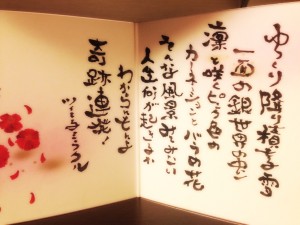 ゆっくり降り積もる雪
一面の銀世界の中に
凛と咲く色の
カーネーションとバラの花
そんな風景みたいに
人生何が起きるか
わからんもんよ
奇跡連発！
ミラクル